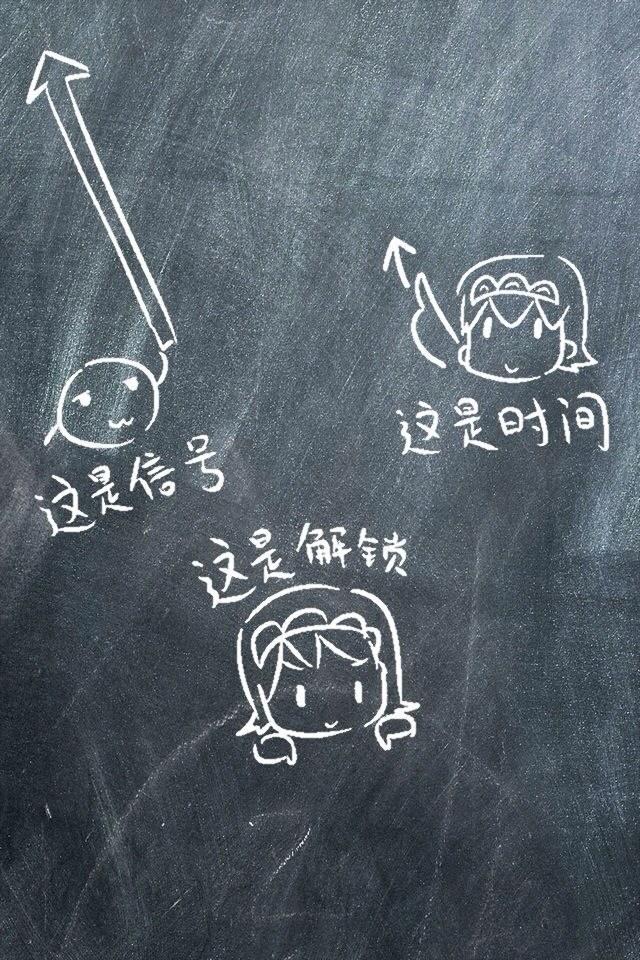 这是时间
这是信号
这是解锁